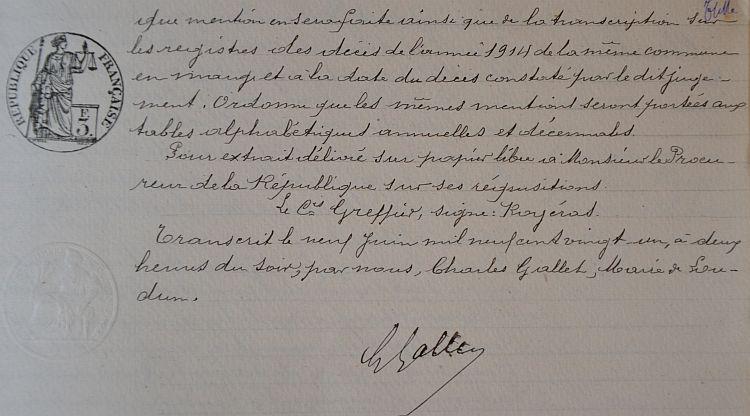 que mention en sera faite ainsi que de la transcription sur
les registres des décès de l'année 1914 de la même commune
en marge et à la date du décès constaté par le dit juge-
ment. Ordonne que les mêmes mentions seront portées aux
tables alphabétiques annuelles et décennales.
Pour extrait délivré sur papier libre à Monsieur le Procu-
reur de la République sur ses réquisitions.
Le Cis Greffier, signé:
Transcrit le neuf Juin mil neuf cent vingt un, à deux
heures du soir, par nous, Charles Gallet, Maire de Lou-
dun.
Ch Gallet
RÉPUBLIQUE FRANÇAISE